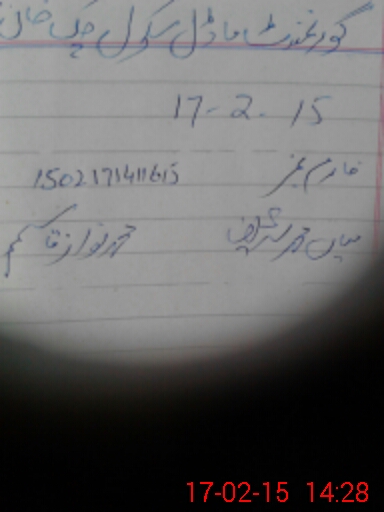 گورنمنٹ ماڈل سکول چک خان
17-2-15
فارم نمبر 1502171411615
میاں محمد شریف محمد نواز قاسم
17-02-15 14:28